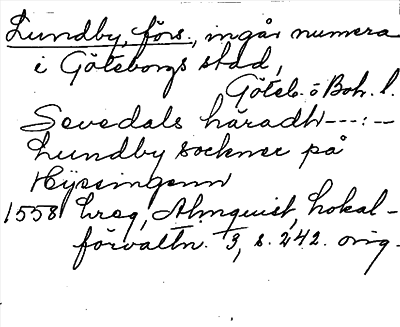 Lundby, förs., ingår numera
i Göteborgs stad,
Göteb. o Boh. l.
Sevedals häradh---:--
Lundby sockner på
Hyssingenn
1558 hreg, Almquist, Lokal-
förvaltn. 3, s. 242. orig.